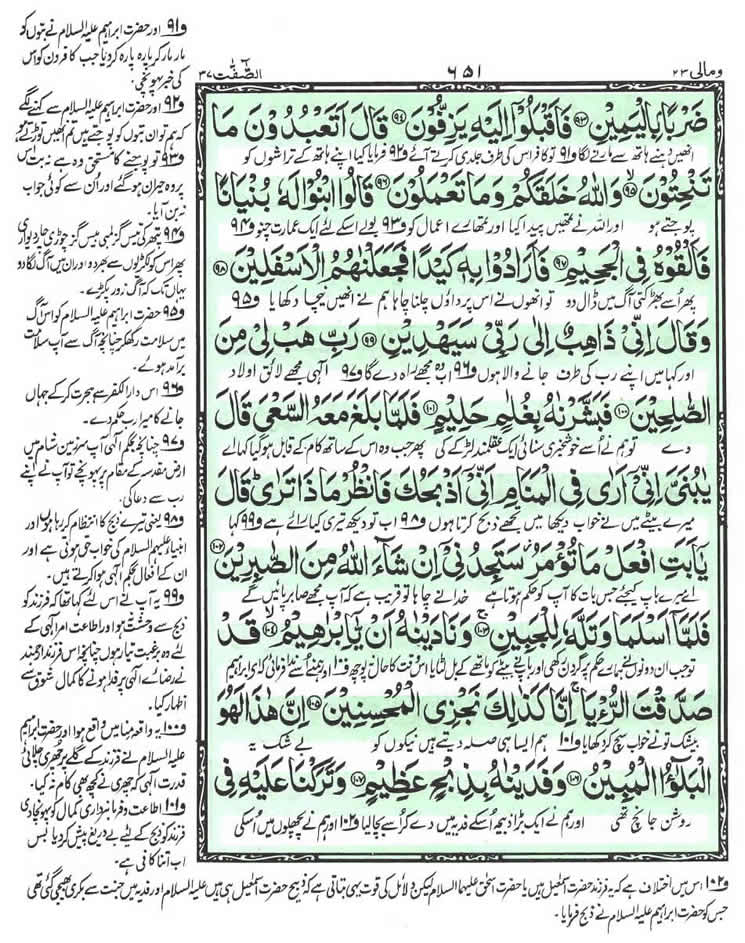 الصّٰٓفّٰت ٣٧
٦٥١
ومالي ٢٣
ضَرْبًۢا بِالْیَمِیْنِ ۝۹۳ فَاَقْبَلُوْۤا اِلَیْهِ یَزِفُّوْنَ ۝۹۴ قَالَ اَتَعْبُدُوْنَ مَا
انھیں اپنے ہاتھ سے مارنے لگا ف۹۱ تو کافر اس کی طرف جلدی کرتے آئے ف۹۲ فرمایا کیا اپنے ہاتھ کے تراشوں کو
تَنْحِتُوْنَ ۝۹۵ وَاللّٰهُ خَلَقَكُمْ وَمَا تَعْمَلُوْنَ ۝۹۶ قَالُوا ابْنُوْا لَهٗ بُنْیَانًا
پوجتے ہو اور اللہ نے تمھیں پیدا کیا اور تمھارے اعمال کو ف۹۳ بولے اسکے لئے ایک عمارت چنو ف۹۴
فَاَلْقُوْهُ فِی الْجَحِیْمِ ۝۹۷ فَاَرَادُوْا بِهٖ كَیْدًا فَجَعَلْنٰهُمُ الْاَسْفَلِیْنَ ۝۹۸
پھر اُسے بھڑکتی آگ میں ڈال دو تو انھوں نے اس پر داؤں چلنا چاہا ہم نے انھیں نیچا دکھایا ف۹۵
وَقَالَ اِنِّیْ ذَاهِبٌ اِلٰی رَبِّیْ سَیَهْدِیْنِ ۝۹۹ رَبِّ هَبْ لِیْ مِنَ
اور کہا میں اپنے رب کی طرف جانے والا ہوں ف۹۶ اب وہ مجھے راہ دے گا ف۹۷ الٰہی مجھے لائق اولاد
الصّٰلِحِیْنَ ۝۱۰۰ فَبَشَّرْنٰهُ بِغُلٰمٍ حَلِیْمٍ ۝۱۰۱ فَلَمَّا بَلَغَ مَعَهُ السَّعْیَ قَالَ
دے تو ہم نے اُسے خوشخبری سنائی ایک عقلمند لڑکے کی پھر جب وہ اس کے ساتھ کام کے قابل ہوگیا کہا اے
یٰبُنَیَّ اِنِّیْۤ اَرٰی فِی الْمَنَامِ اَنِّیْۤ اَذْبَحُكَ فَانْظُرْ مَاذَا تَرٰی ؕ قَالَ
میرے بیٹے میں نے خواب دیکھا میں تجھے ذبح کرتا ہوں ف۹۸ اب تو دیکھ تیری کیا رائے ہے ف۹۹ کہا
یٰۤاَبَتِ افْعَلْ مَا تُؤْمَرُ ؗ سَتَجِدُنِیْۤ اِنْ شَآءَ اللّٰهُ مِنَ الصّٰبِرِیْنَ ۝۱۰۲
اے میرے باپ کیجئے جس بات کا آپ کو حکم ہوتا ہے خدا نے چاہا تو قریب ہے کہ آپ مجھے صابر پائیں گے
فَلَمَّاۤ اَسْلَمَا وَتَلَّهٗ لِلْجَبِیْنِ ۝۱۰۳ۚ وَنَادَیْنٰهُ اَنْ یّٰۤاِبْرٰهِیْمُ ۝۱۰۴ۙ قَدْ
توجب ان دونوں نے ہمارے حکم پر گردن رکھی اور باپ نے بیٹے کو ماتھے کے بل لٹایا اس وقت کا حال نہ پوچھ ف۱۰۰ اور ہم نے اُسے ندا فرمائی کہ اے ابراہیم
صَدَّقْتَ الرُّءْیَا ۚ اِنَّا كَذٰلِكَ نَجْزِی الْمُحْسِنِیْنَ ۝۱۰۵ اِنَّ هٰذَا لَهُوَ
بیشک تو نے خواب سچ کر دکھایا ف۱۰۱ ہم ایسا ہی صلہ دیتے ہیں نیکوں کو بے شک یہ
الْبَلٰٓؤُا الْمُبِیْنُ ۝۱۰۶ وَفَدَیْنٰهُ بِذِبْحٍ عَظِیْمٍ ۝۱۰۷ وَتَرَكْنَا عَلَیْهِ فِی
روشن جانچ تھی اور ہم نے ایک بڑا ذبیحہ اسکے فدیہ میں دے کر اُسے بچالیا ف۱۰۲ اور ہم نے پچھلوں میں اسکی
ف۹۱ اور حضرت ابراہیم علیہ السلام نے بتوں کو
مار مار کر پارہ پارہ کر دیا جب کافروں کو اس
کی خبر پہونچی۔
ف۹۲ اور حضرت ابراہیم علیہ السلام سے کہنے لگے
کہ ہم تو ان بتوں کو پوجتے ہیں تم انھیں توڑتے ہو
ف۹۳ تو پوجنے کا مستحق وہ ہے نہ بت اس
پر وہ حیران ہوگئے اور اُن سے کوئی جواب
نہ بن آیا۔
ف۹۴ پتھر کی تیس گز لمبی بیس گز چوڑی چار دیواری
پھر اس کو لکڑیوں سے بھر دو اور ان میں آگ لگا دو
یہاں تک کہ آگ زور پکڑے۔
ف۹۵ حضرت ابراہیم علیہ السلام کو اس آگ
میں سلامت رکھ کر چنانچہ آگ سے آپ سلامت
برآمد ہوئے۔
ف۹۶ اس دارالکفر سے ہجرت کرکے جہاں
جانے کا میرا رب حکم دے۔
ف۹۷ چنانچہ بحکم الٰہی آپ سرزمین شام میں
ارض مقدسہ کے مقام پر پہونچے تو آپ نے اپنے
رب سے دعا کی۔
ف۹۸ یعنی تیرے ذبح کا انتظام کر رہا ہوں اور
انبیاء علیہم السلام کی خواب حق ہوتی ہے اور
ان کے افعال بحکم الٰہی ہوا کرتے ہیں۔
ف۹۹ یہ آپ نے اس لئے کہا تھا کہ فرزند کو
ذبح سے وحشت نہ ہو اور اطاعت امر الٰہی کے
لئے وہ برغبت تیار ہوں چنانچہ اس فرزند ارجمند
نے رضائے الٰہی پر فدا ہونے کا کمال شوق سے
اظہار کیا۔
ف۱۰۰ یہ واقعہ منا میں واقع ہوا اور حضرت ابراہیم
علیہ السلام نے فرزند کے گلے پر چھری چلائی
قدرت الٰہی کہ چھری نے کچھ بھی کام نہ کیا۔
ف۱۰۱ اطاعت و فرمانبرداری کمال کو پہونچا دی
فرزند کو ذبح کے لئے بے دریغ پیش کر دیا بس
اب اتنا کافی ہے۔
ف۱۰۲ اس میں اختلاف ہے کہ یہ فرزند حضرت اسمٰعیل ہیں یا حضرت اسحٰق علیہما السلام لیکن دلائل کی قوت یہی بتاتی ہے کہ ذبیح حضرت اسمٰعیل ہی ہیں علیہ السلام اور فدیہ میں جنت سے بکری بھیجی گئی تھی
جس کو حضرت ابراہیم علیہ السلام نے ذبح فرمایا۔